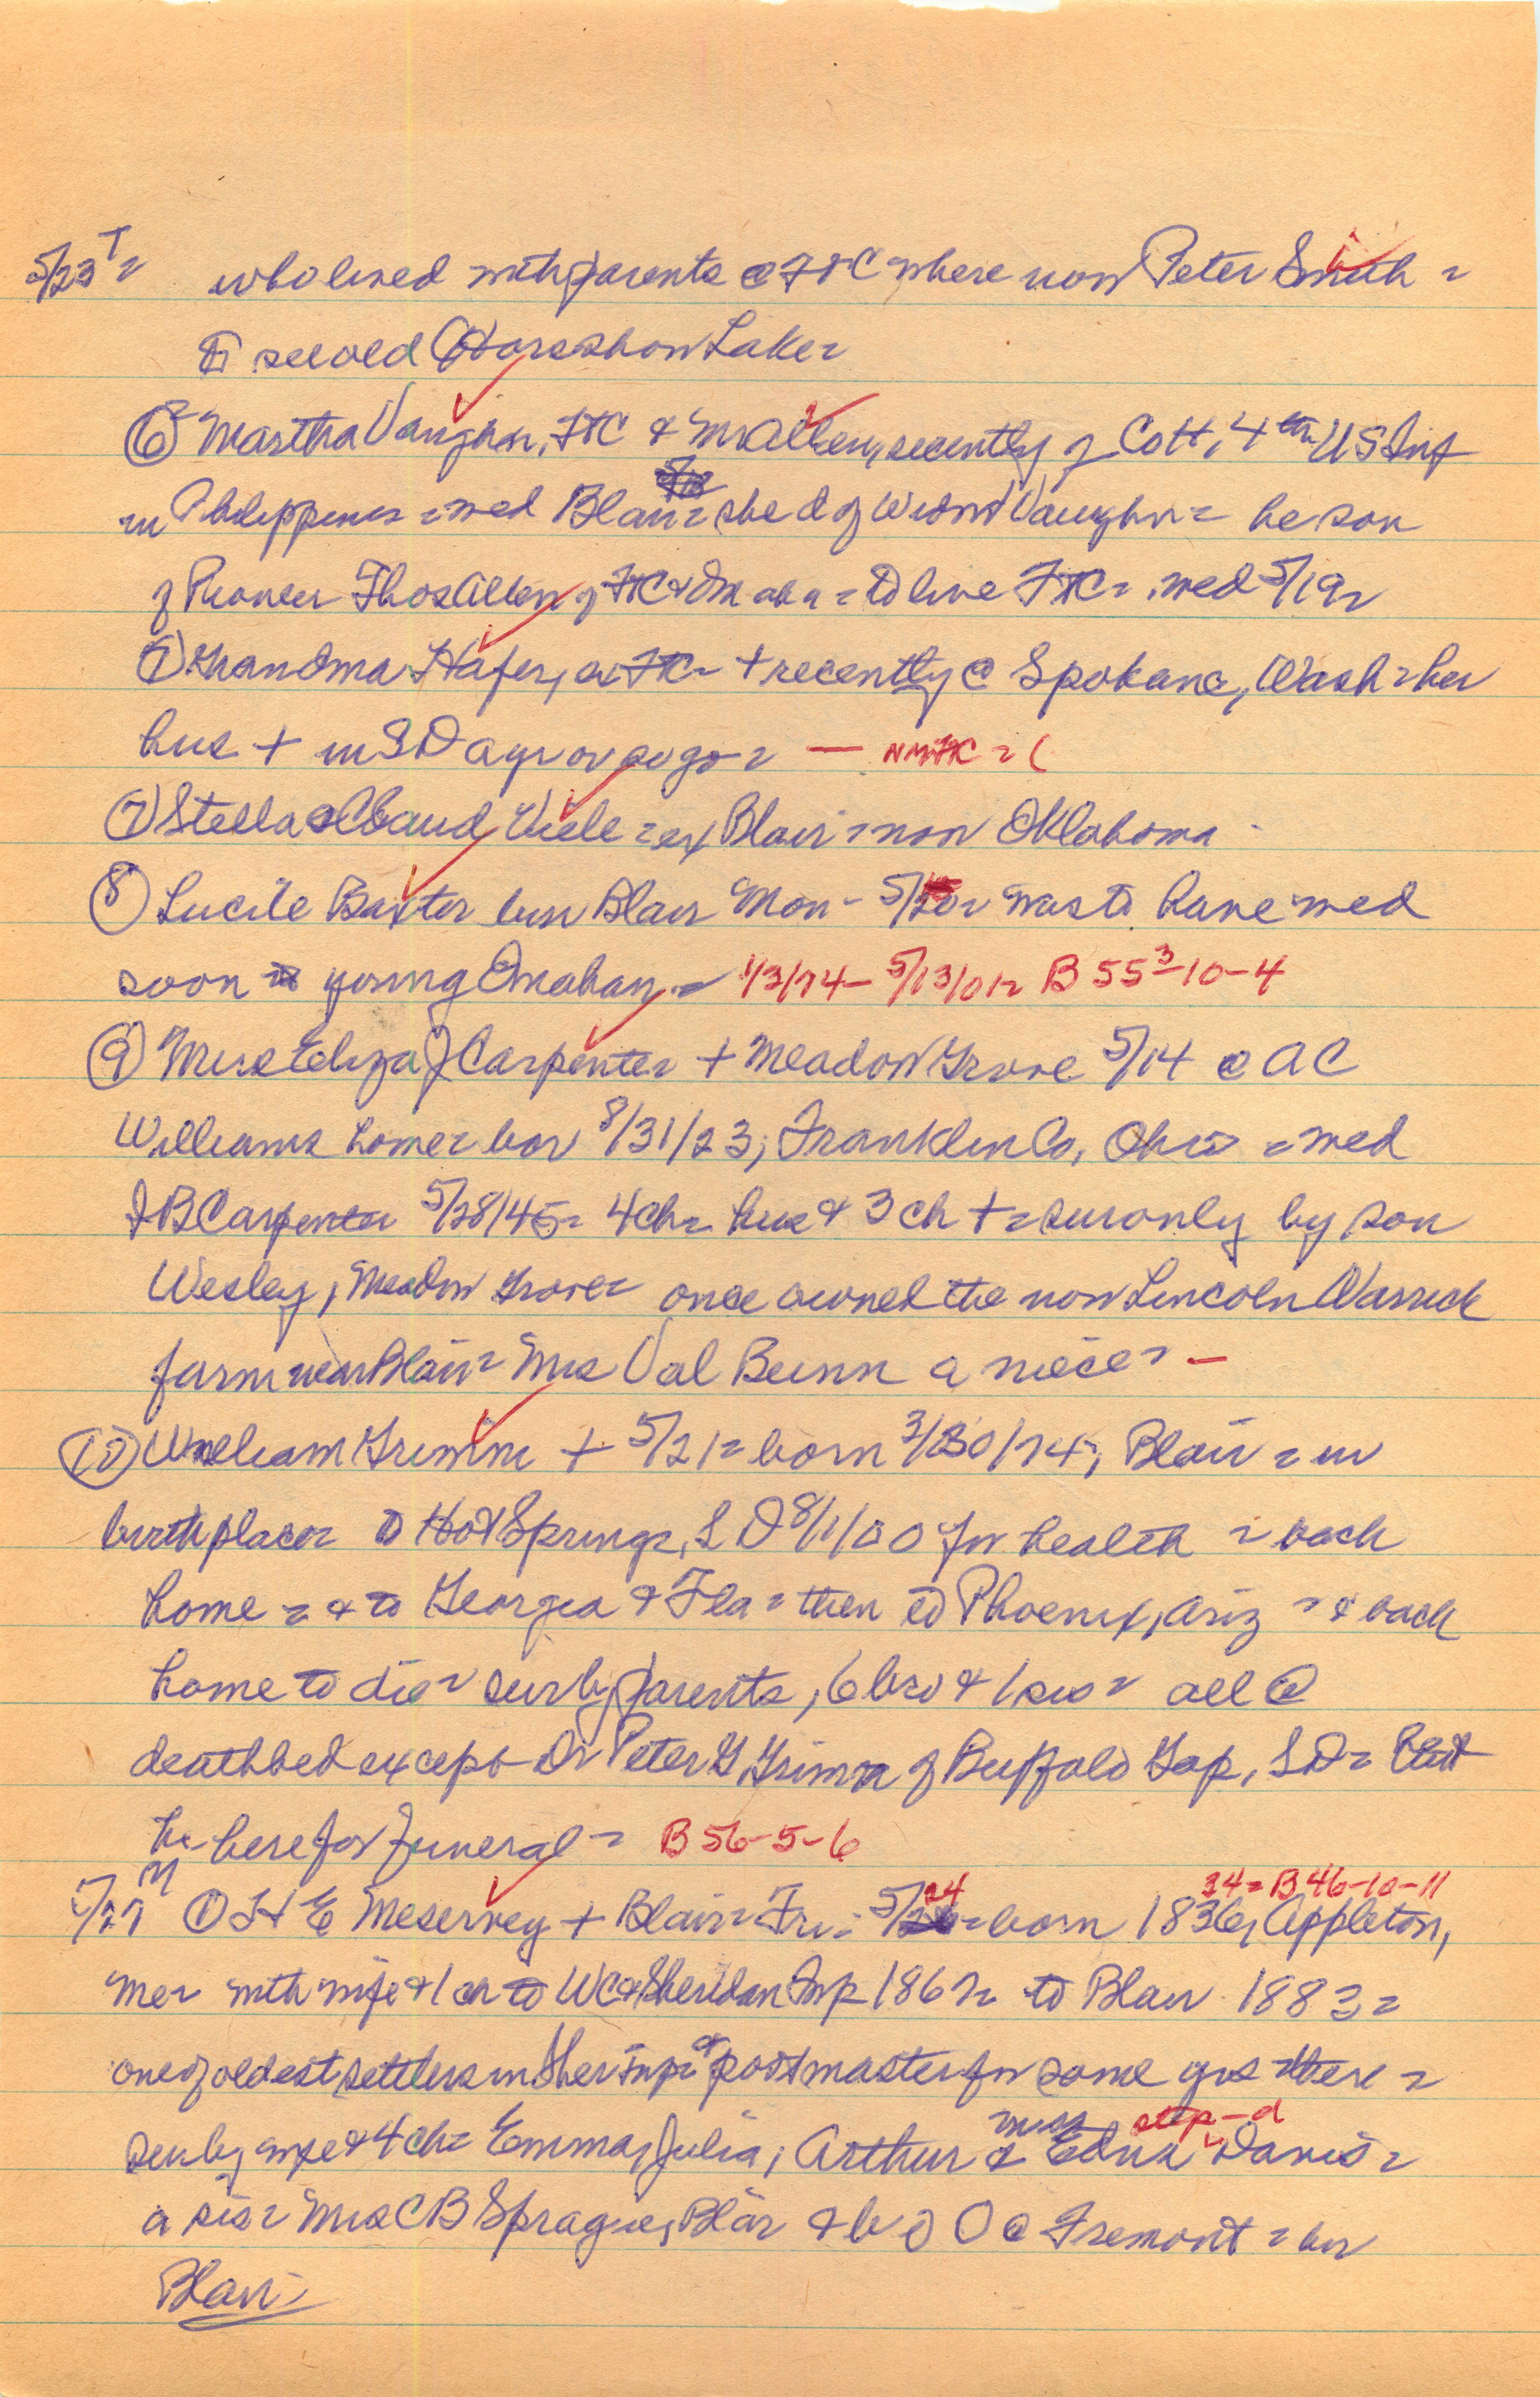 5/23 T= who lived with parents @ FtC where now Peter Smith =
see old Horseshow Lake=
⑥ Martha Vaughan, FtC & Mr Allen, recently of CoH, 4th US Inf
in Philippines = med Blair = she d of Widow Vaughn = he son
of Pioneer Thos Allen of FtC & Omaha = to live FtC = med 5/19=
⑦ Grandma Hafer, ex FtC = + recently @ Spokane, Wash = her
hus + in SD a yr or so ago = — nm FtC = (
⑦ Stella Viele = ex Blair = now Oklahoma
⑧ Lucile Baxter bur Blair Mon - 5/ = was to have med
soon young Omahan = 1/3/74 - 5/13/01 = B 55³-10-4
⑨ Mrs Eliza J Carpenter + Meadow Grove 5/14 @ A C
Williams home = bor 8/31/23, Franklin Co, Ohio = med
J B Carpenter 5/28/45 = 4 ch = hus & 3 ch + = sur only by son
Wesley, Meadow Grove = once owned the now Lincoln Warrick
farm near Blair = Mrs Val Bunn a niece = —
⑩ William Grimm + 5/21 = born 3/30/74, Blair = in
birthplace = to Hot Springs, S D 8/1/00 for health = back
home = & to Georgia & Fla = then to Phoenix, Ariz = & back
home to die = sur by parents, 6 bro & 1 sis = all @
deathbed except Dr Peter G Grimm of Buffalo Gap, S D = But
he here for funeral = B 56-5-6
5/27 M ① H E Meservey + Blair = Fri = 5/24 = born 1836, Appleton, 34 = B 46-10-11
Me = with wife & 1 ch to WC & Sheridan Twp 1867 = to Blair 1883 =
one of oldest settlers in Sher Twp = & postmaster for some yrs there =
sur by wife & 4 ch = Emma, Julia, Arthur & Mrs Edna Davis = step-d
a sis = Mrs C B Sprague, Blair & b O O @ Fremont = bur
Blair =